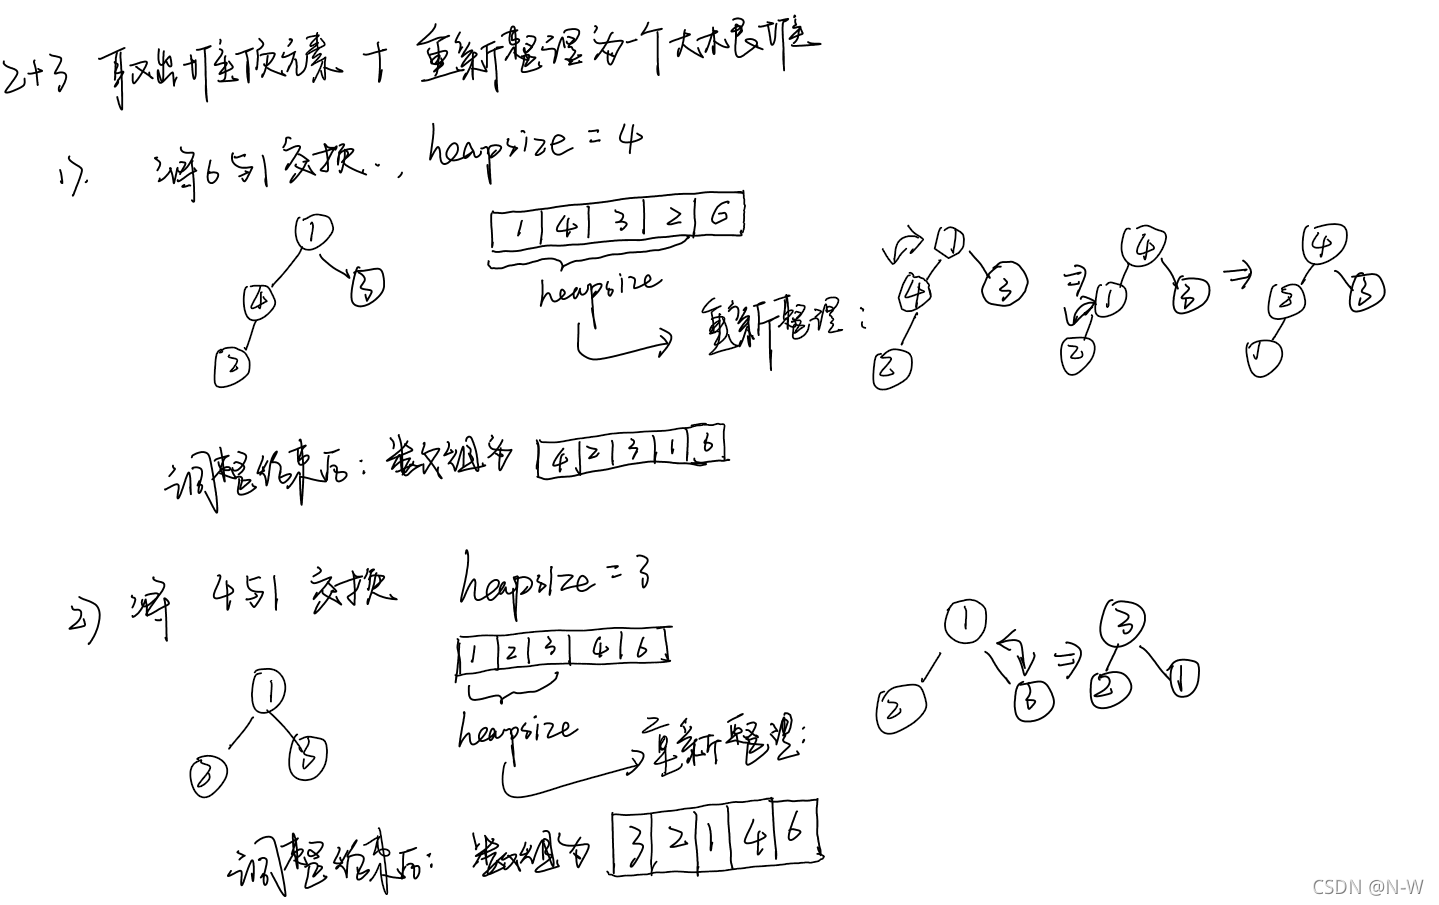 2+3 取出堆顶元素 + 重新整理为一个大根堆
1). 将6与1交换., heapsize = 4
1 4 3 2 6
1
4 3
2
heapsize
重新整理:
1
4 3
2
⇒
4
1 3
2
⇒
4
2 3
1
调整结束后: 数组为 4 2 3 1 6
2) 将 4与1 交换 heapsize = 3
1 2 3 4 6
1
2 3
heapsize
重新整理:
1
2 3
⇒
3
2 1
调整结束后: 数组为 3 2 1 4 6
CSDN @N-W